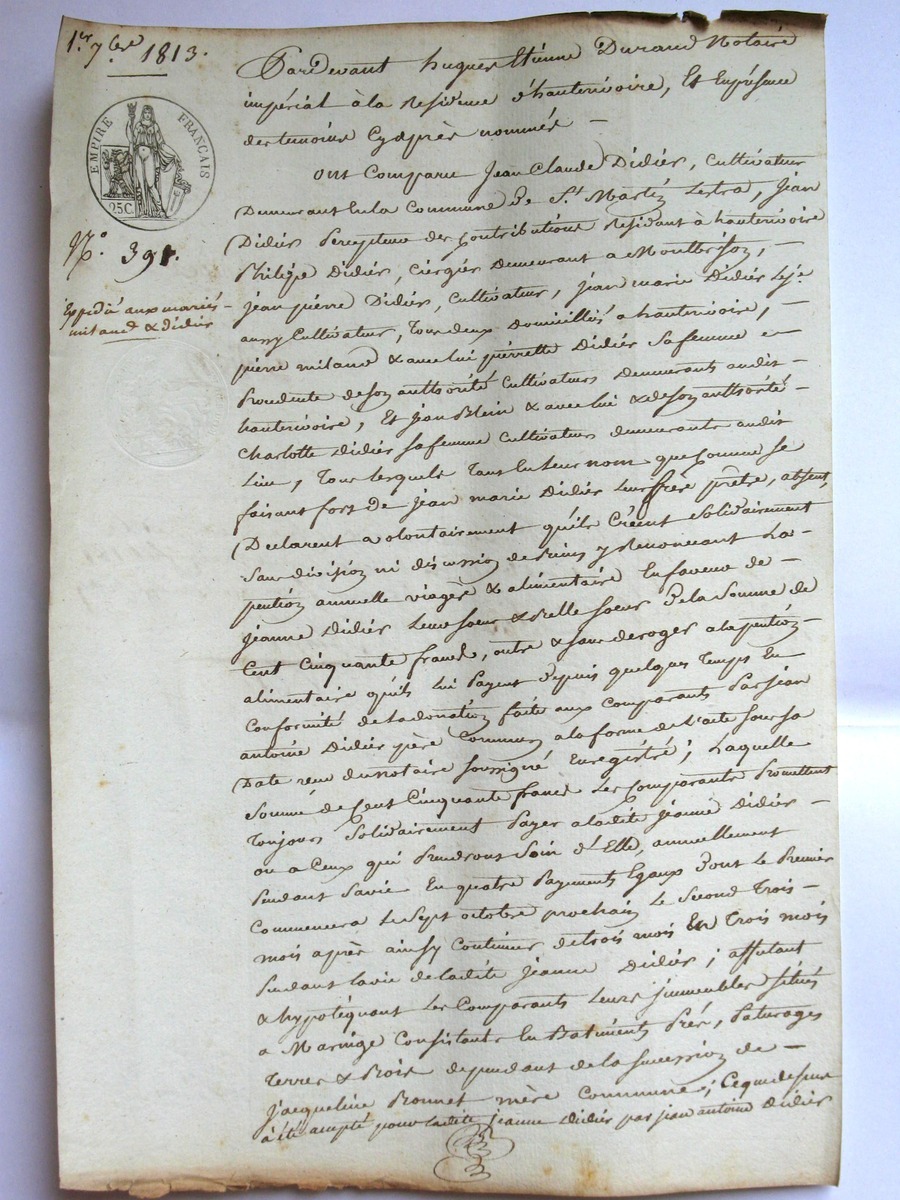 1er 7bre 1813.
EMPIRE FRANÇAIS
25C.
No. 391.
Expedié aux mariés
mitaud & didier
Pardevant hugues Etienne Durand Notaire
impérial à la Residence d'hauterivoire, Et En présence
des temoins Cy après nommés —
ont Comparu Jean Claude Didier, Cultivateur
Demeurant En la Commune de St. Martin Lestra, Jean
Didier Percepteur des Contributions Residant à hauterivoire
Philipe Didier, Ciergier Demeurant a Montbrison, —
Jean pierre Didier, Cultivateur, Jean marie Didier Le je.
aussy Cultivateur, Tous deux Domiciliés a hauterivoire, —
pierre mitaud & avec lui pierrette Didier Sa femme
Procedante de son authorité Cultivateurs Demeurants audit —
hauterivoire, Et Jean Blein & avec lui & de son authorité —
Charlotte Didier sa femme Cultivateurs demeurants audit
Lieu, Tous lesquels Tant En leur nom que Comme se
faisant forts de Jean marie Didier Leur frere prêtre, absent,
Declarent volontairement qu'ils Créent Solidairement
Sans division ni discussion de biens y Renonceant La —
pention annuelle viagère & alimentaire En faveur de —
Jeanne Didier Leur soeur & Belle soeur De la Somme de
Cent Cinquante francs, outre & sans deroger a la pention
alimentaire qu'ils lui Payent Depuis quelques Temps En
Conformité de La donation faite aux Comparants Par Jean
antoine Didier père Commun a la forme de L'acte Sous sa
Date reçu du notaire soussigné Enregistré; Laquelle
Somme de Cent Cinquante francs Les Comparants Promettent
Toujours Solidairement Payer a ladite jeanne Didier —
ou a Ceux qui Prendront Soin d'Elle, annuellement
Pendant Sa vie En quatre Payements Egaux Dont Le Premier
Commencera Le Sept octobre prochain Le Second Trois —
mois après ainsy Continuer de trois mois En Trois mois
Pendant la vie de ladite Jeanne Didier; affectant
& hypotéquant Les Comparants Leurs immeubles Situés
a Maringe Consistants En Batiments Prés, Paturages
Terres & Bois dependant de la succession de —
Jacqueline Bonnet mère Commune; Ce qui dessus
à été accepté pour ladite jeanne didier par jean antoine Didier